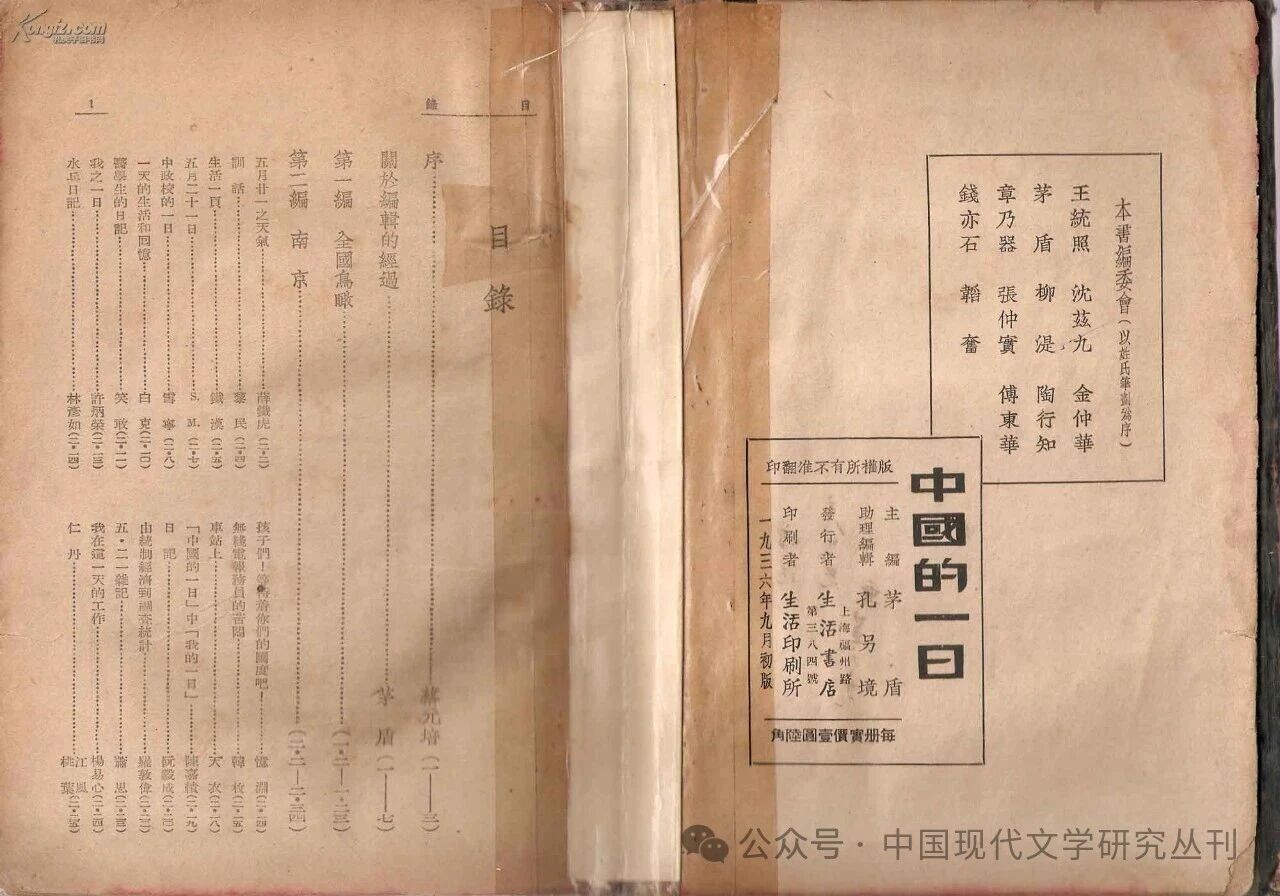 本書編委會（以姓氏筆劃爲序）
王統照　沈茲九　金仲華
茅　盾　柳　湜　陶行知
章乃器　張仲實　傅東華
錢亦石　韜　奮
中國的一日
版權所有不准翻印
主　編　茅　盾
助理編輯　孔另境
發行者　生活書店
上海福州路
第三八四號
印刷者　生活印刷所
一九三六年九月初版
每册實價壹圓陸角
目錄
目錄
序……蔡元培（一——三）
關於編輯的經過……茅　盾（一——七）
第一編　全國鳥瞰……（一·二—一·二三）
第二編　南京……（二·二—二·三四）
五月廿一之天氣……薛鐵虎（二·二）
訓　話……黎　民（二·四）
生活一頁……鐵　漢（二·五）
五月二十一日……S. M.（二·七）
中政校的一日……雪　寧（二·八）
一天的生活和回憶……白　克（二·一〇）
醫學生的日記……笑　敢（二·一一）
我之一日……許炳榮（二·一三）
水兵日記……林彥如（二·一四）
孩子們！等待着你們的國度吧！……憶　淵（二·一四）
無綫電報務員的苦悶……韓　枚（二·一五）
車站上……天　衣（二·一八）
「中國的一日」中「我的一日」……陳嘉績（二·一九）
日　記……阮毅成（二·二〇）
由統制經濟到調查統計……羅敦偉（二·二二）
五·二一雜記……蕭　思（二·二三）
我在這一天的工作……楊易心（二·二四）
仁　丹……江　風　桃　葉（二·二五）
1
Kongfz.com
孔夫子旧书网
公众号·中国现代文学研究丛刊